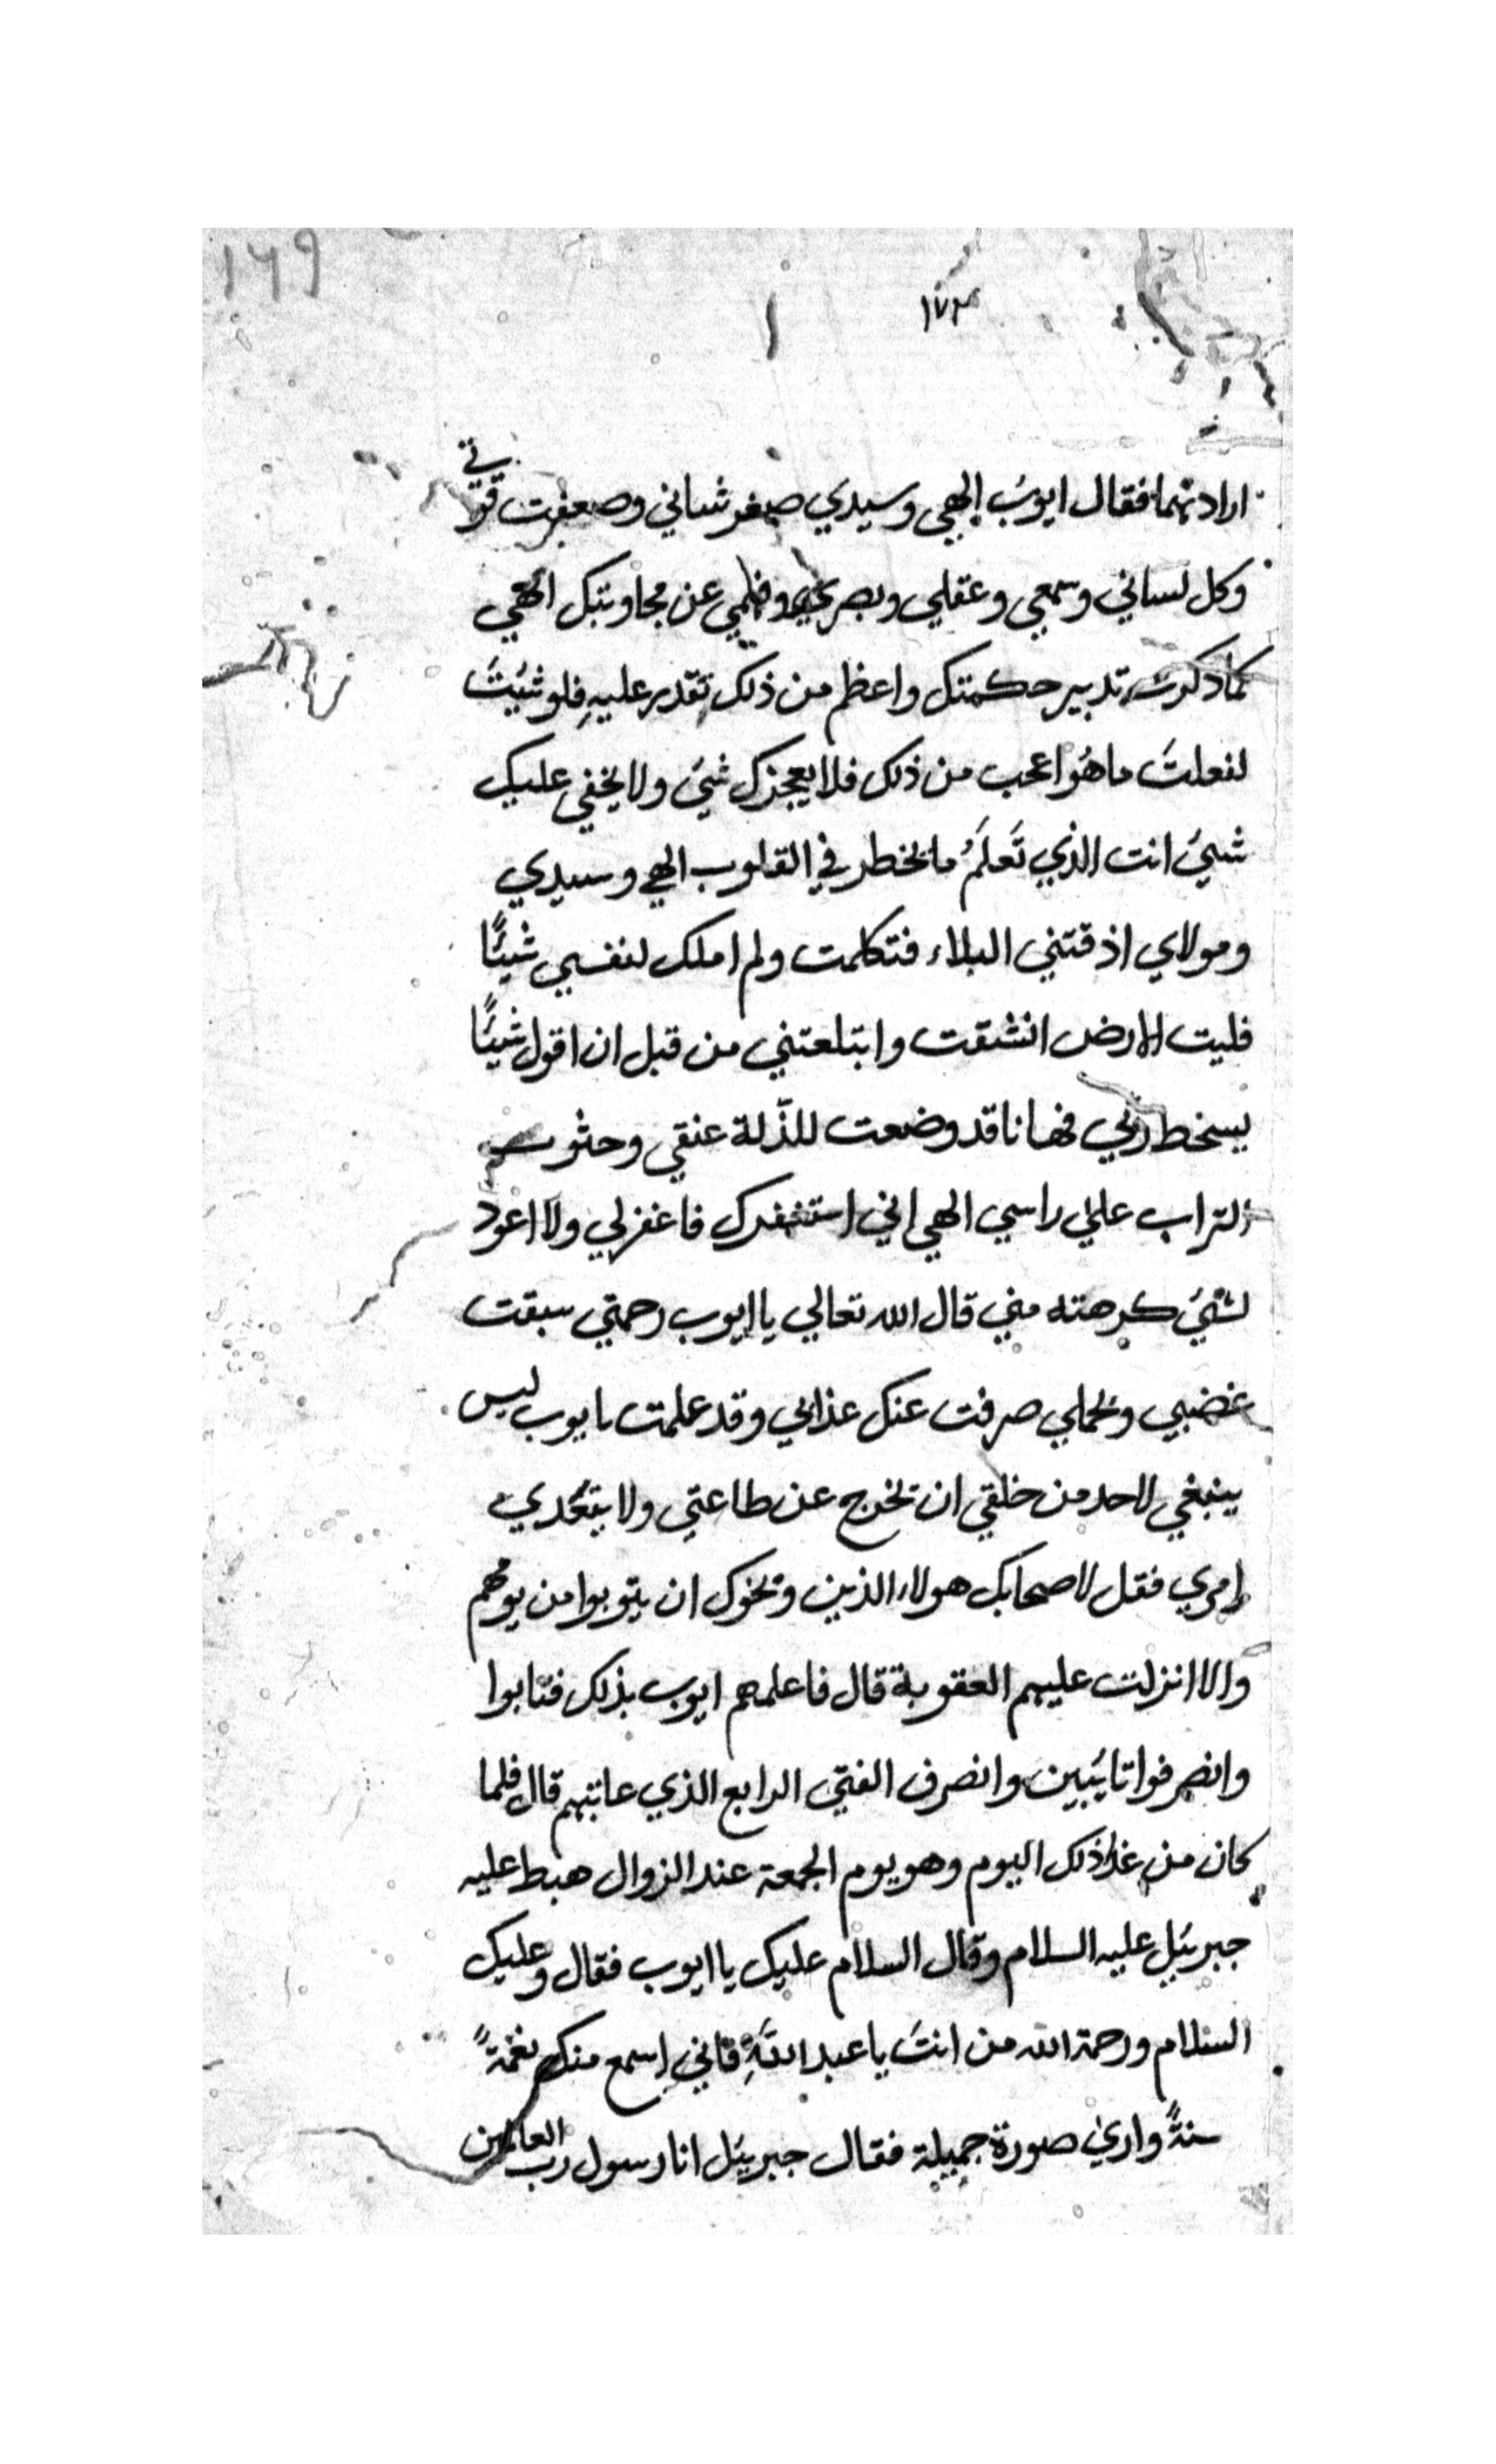 ١٤٩
١٧٣
اراد بهما فقال ايوبُ الهي وسيدي صغر شاني وضعفت قوتي
وكل لساني وسمعي وعقلي وبصري وفهمي عن مجاوبتك الهي
كما ذكرت تدبير حكمتك واعظم من ذلك تقدر عليهِ فلو شئيتَ
لفعلتَ ما هُو اعجب من ذلك فلا يعجزك شئ ولا يخفي عليك
شيئ انت الذي تَعلَمُ ما يخطر في القلوب الهي وسيدي
ومولاي اذقتني البلاء فتكلمت ولم املك لنفسي شيئًا
فليت الارض انشقت وابتلعتني من قبل ان اقول شيئًا
يسخط ربي فها نا قد وضعت للذلة عنقي وحثوت
التراب علي راسي الهي اني استغفرك فاغفر لي ولا اعود
لشئ كرهته مني قال الله تعالي يا ايوب رحمتي سبقت
غضبي وبحلمي صرفت عنك عذابي وقد علمت يايوب ليس
ينبغي لاحد من خلقي ان يخرج عن طاعتي ولا يتعدي
امري فقل لاصحابك هولاء الذين وبخوك ان يتوبوا من يومهم
والا انزلت عليهم العقوبة قال فاعلمهم ايوب بذلك فتابوا
وانصرفوا تايبين وانصرف الفتي الرابع الذي عاتبهم قال فلما
كان من غد ذلك اليوم وهو يوم الجمعة عند الزوال هبط عليه
جبريئل عليه السلام وقال السلام عليك يا ايوب فقال وعليك
السلام ورحمة الله من انتَ يا عبد اللهِ فاني اسمع منك نغمةً
واري صورة جميلة فقال جبريئل انا رسول رب العالمين